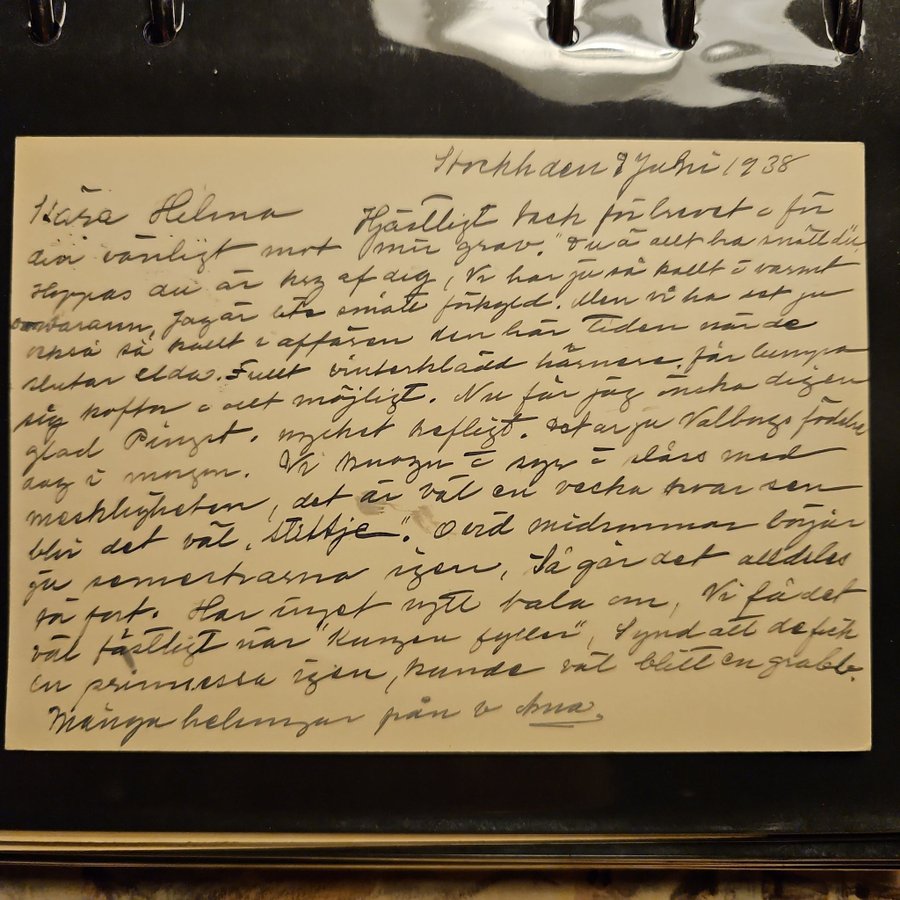 Stockh den 3 Juni 1938
Kära Helma Hjärtligt tack för brevet o för
din vänligt mot min grav. "Du ä allt bra snäll du
Hoppas du är kry af dig, Vi har ju så kallt o varmt
varann, Jag är lite smått förkyld. Men vi ha det ju
också så kallt i affären den här tiden när de
slutar elda. Fullt vinterklädd härnere, får lumpa
sig koftor o allt möjligt. Nu får jag önska dig en
glad Pingst, mycket trefligt. Det är ju Valborgs födelse
dag i morgon. Vi knogar o syr o slåss med
meschligheten, det är väl en vecka kvar sen
blir det väl "stiltje". O vid midsommar börjar
ju semestrarna igen, Så går det alldeles
för fort. Har inget nytt tala om, Vi få det
väl fästligt när "Kungen fyller", Synd att de fick
en prinsessa igen, kunde väl blitt en grabb.
Många helsningar från v Anna.